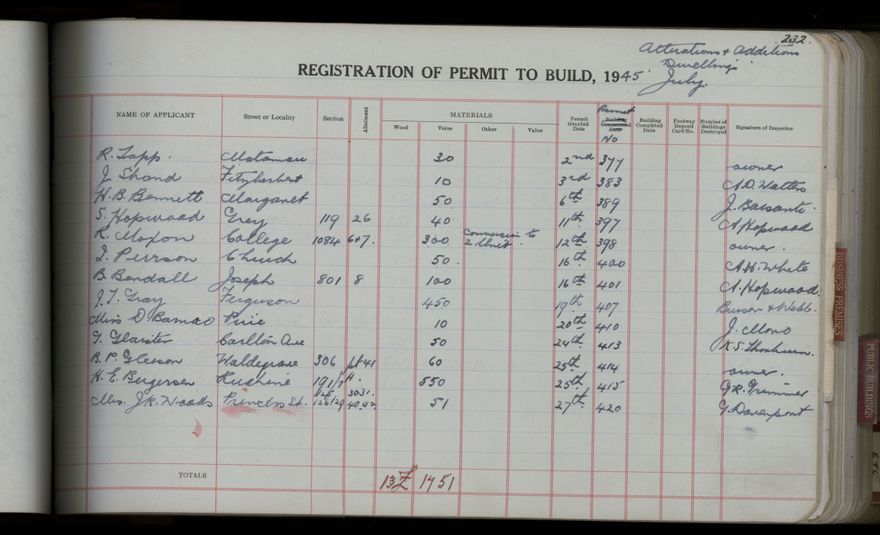 232.
Alterations & Additions
Dwellings
July
REGISTRATION OF PERMIT TO BUILD, 1945
NAME OF APPLICANT Street or Locality Section Allotment MATERIALS Permit Granted Date Permit Building Commenced Date No Building Completed Date Footway Deposit Card No. Number of Buildings Destroyed Signature of Inspector
Wood Value Other Value
R. Tapp. Matamau 30 2nd 377 owner
J. Shand Fitzherbert 10 3rd 383 A.D. Watters
H. B. Bennett Margaret 50 6th 389 J. Barsanti
S. Hopwood Grey 119 26 40 11th 397 A Hopwood
R. Moxon College 1084 6+7. 300 Conversion to 2 Unit. 12th 398 owner.
Church 50. 16th 400 A.H. White
B. Bendall Joseph 801 8 100 16th 401 A. Hopwood.
J. T. Gray Ferguson 450 19th 407 & Webb.
Miss D. Pirie 10 20th 410 J. Mono
Carlton Ave 50 24th 413
B. P. Gleeson Waldegrave 306 pt 41 60 25th 414 owner.
H. E. Bergersen 191/7 550 25th 415 G.R. Trimmer
Mrs. J.R. Woods Princess St. 126/29 40.42. 51 27th 420 G. Davenport
TOTALS 13 1751
BUSINESS PREMISES
PUBLIC BUILDINGS